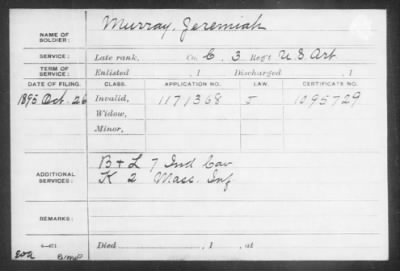 Murray, Jeremiah
NAME OF SOLDIER:
SERVICE: Late rank, Co. C, 3 Reg't U.S. Art
TERM OF SERVICE: Enlisted , 1 Discharged , 1
DATE OF FILING. CLASS. APPLICATION NO. LAW. CERTIFICATE NO.
1895 Oct. 26 Invalid, 1171368 1095729
Widow,
Minor,
ADDITIONAL SERVICES: B + L 7 Ind Cav
K 2 Mass. Inf
REMARKS:
Died , 1 , at